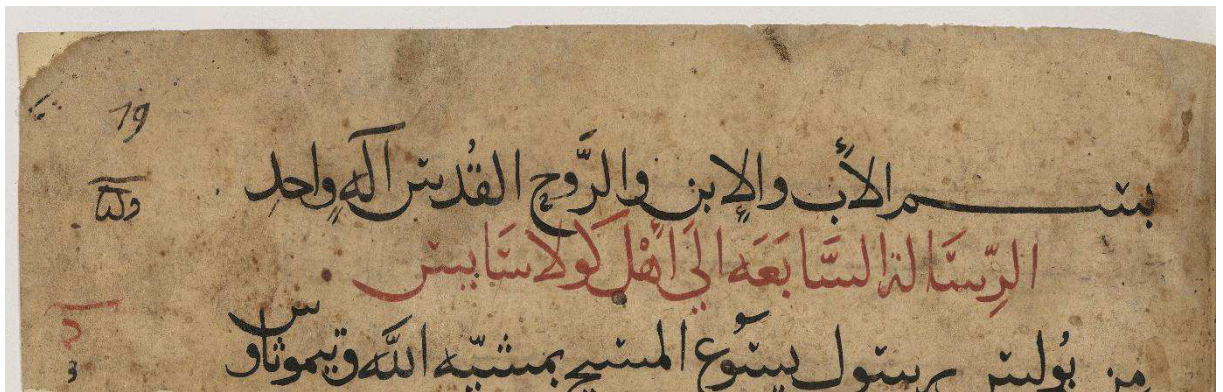 19
بسم الأب والإبن والرَّوحِ القُدس آلهٍ واحدِ
الرِسَالة السَّابعَه الَي أَهْل كَولاسَايس
من بُولس رسول يسَوع المسيح بمشيّه اللَّه وتيموثاوس
3